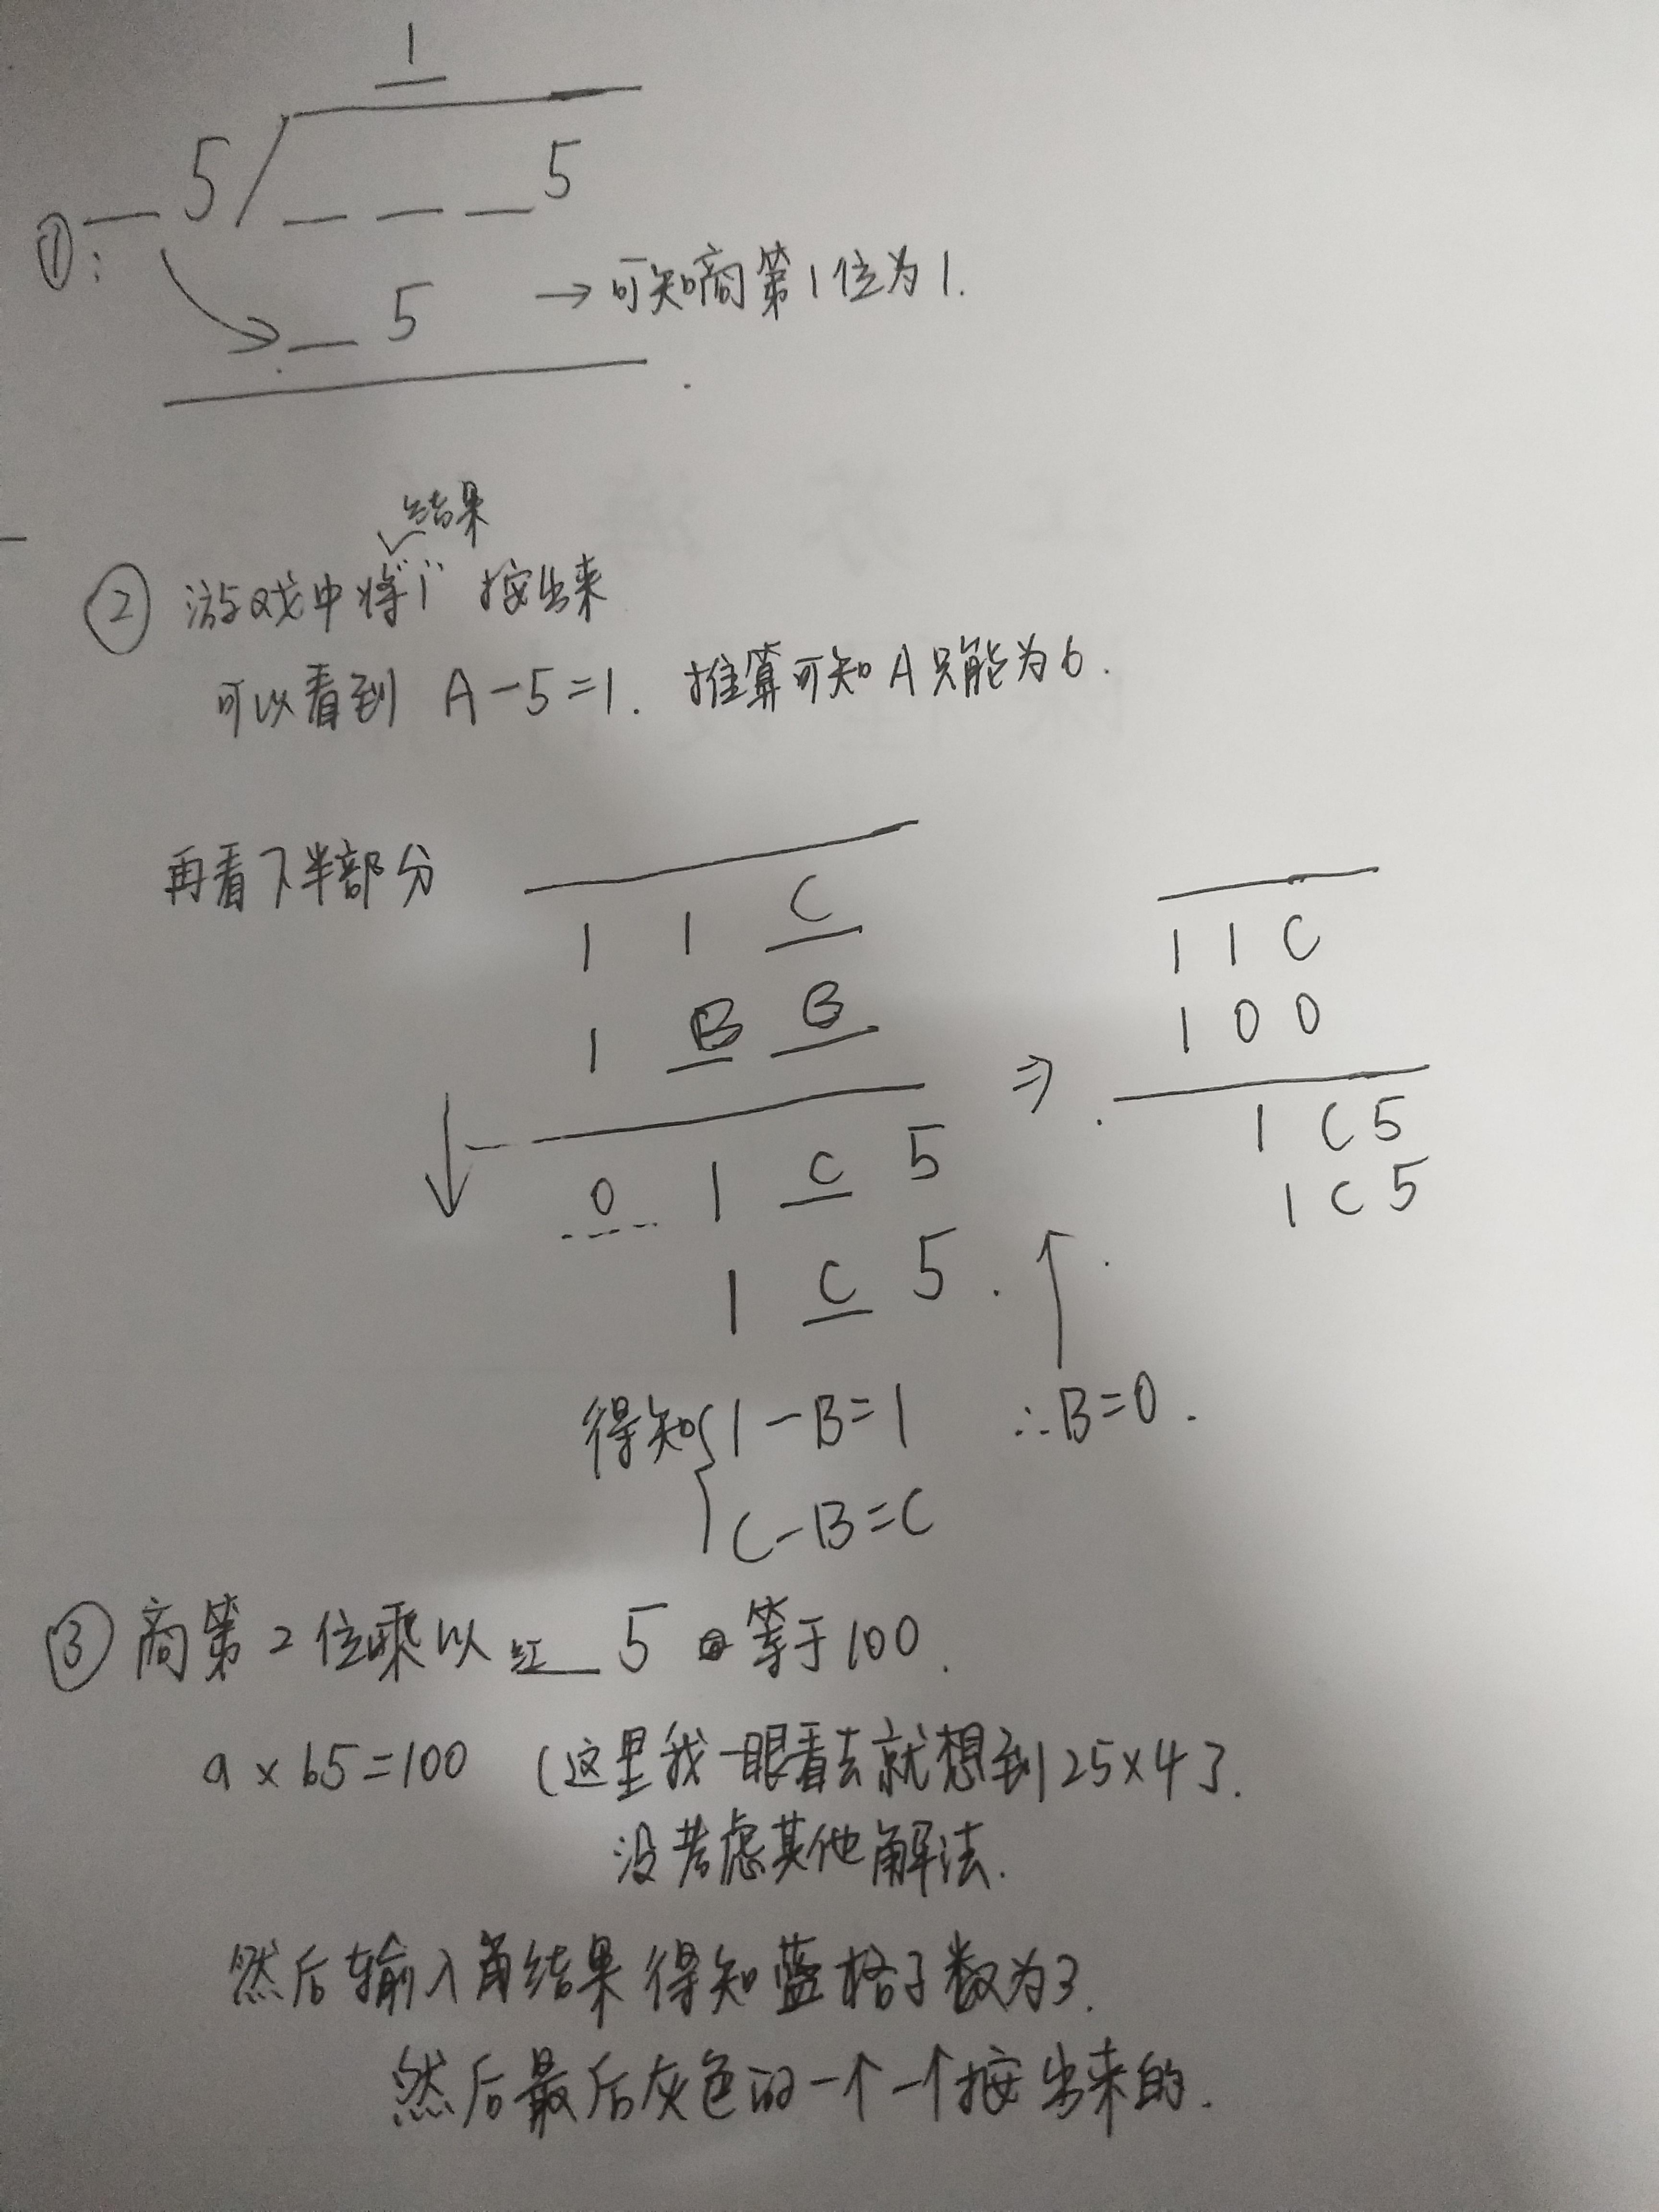 1
5 5
①: 5 → 可知商第1位为1.
结果
② 游戏中将"1"按出来
可以看到 A-5=1. 推算可知A只能为6.
再看下半部分
1 1 C
1 B B
0 1 C 5
1 C 5.
⇒
1 1 C
1 0 0
1 C 5
1 C 5
得知{1-B=1 ∴B=0.
C-B=C
③ 商第2位乘以红__5 等于100.
a×b5=100 (这里我一眼看去就想到25×4了.
没考虑其他解法.
然后输入 结果得知蓝格子数为3.
然后最后灰色的一个一个按出来的.